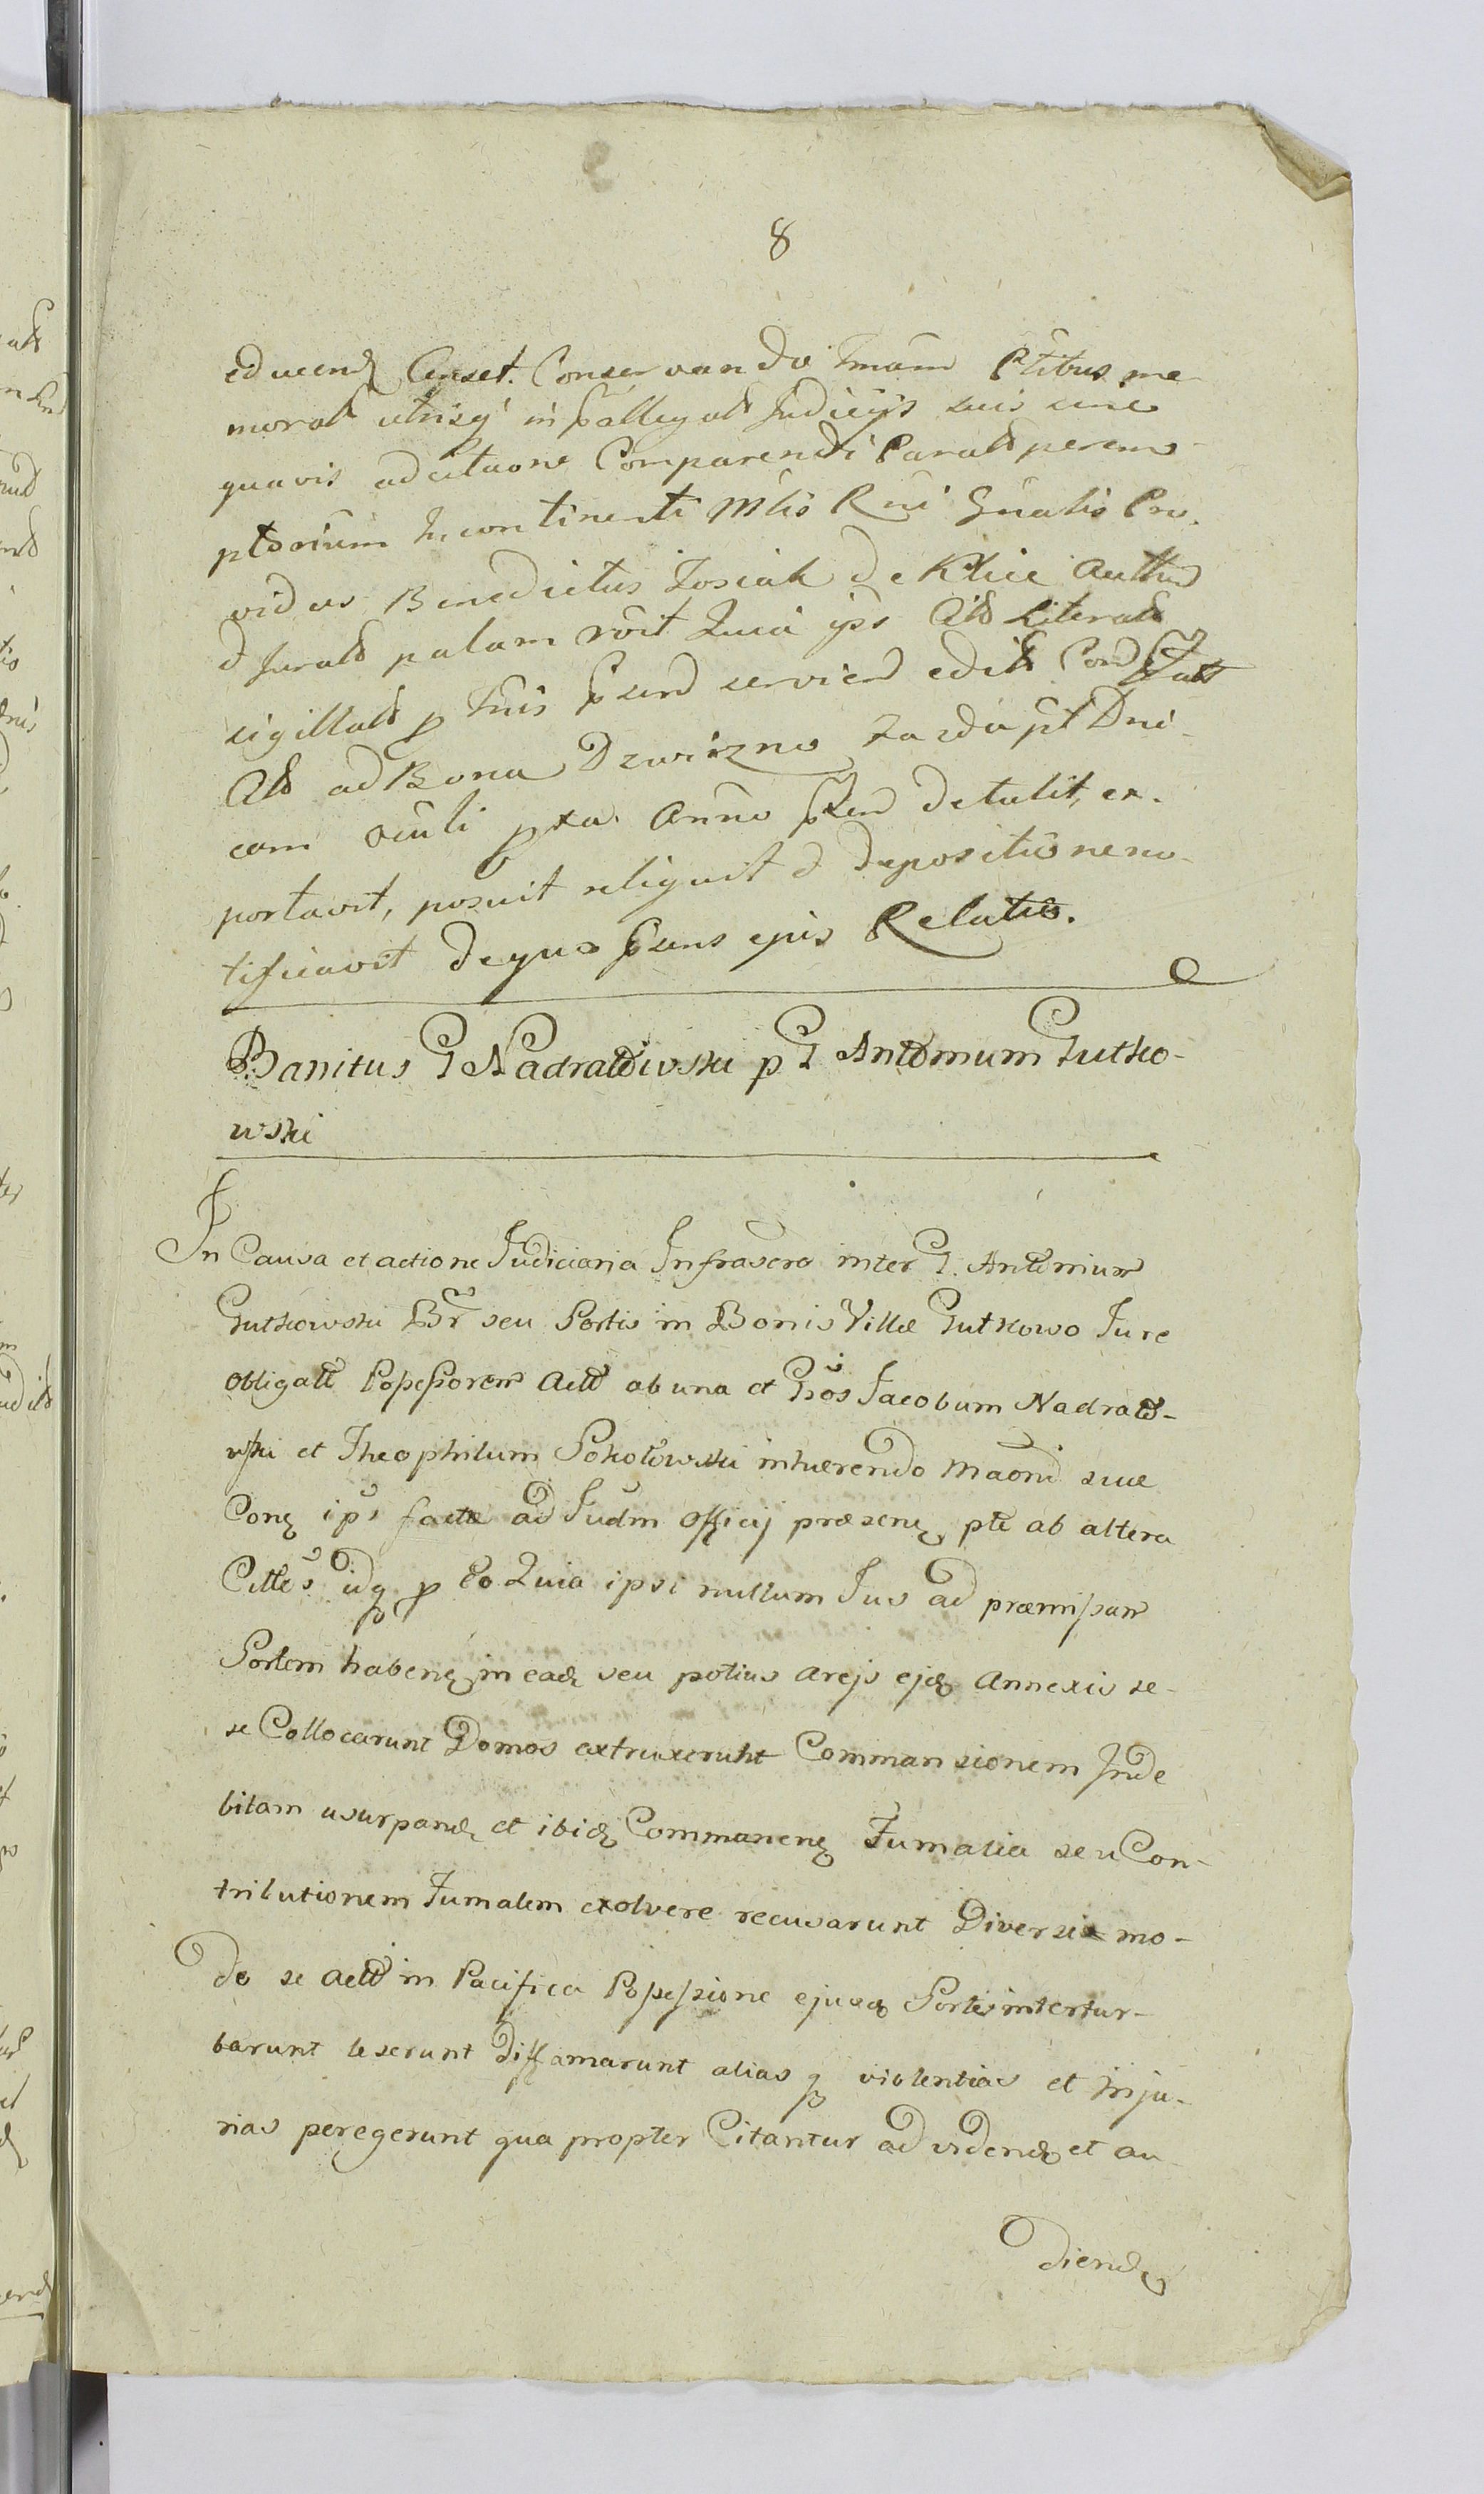 8
educend Censet. Conservando Tmum Ptibus me
morat utrisq in pallegat Judicijs suis sine
quavis adcitaone Comparendi Parat perem-
ptorium Incontinenti Mtis Rni Gnalis Pro-
vidus Benedictus Losiak de Klice Auth
d Jurat palam roit Quia ips Alt Literat
sigillat p Tnis psend serviend edit Cond
Alt ad Bona Dzwizno Zazda pt Dni-
cam oculi pxa Anno psen detulit, ex-
portavit, posuit reliquit d depositione no-
tificavit de quo psens ejus Relatio.
Banitus G Nadratowski p G Antonium Gutko-
wski
In Causa et actione Judiciaria Infrascra inter G. Antonium
Gutkowski Br seu Sortis in Bonis Villæ Gutkowo Jure
obligatt Possessorem Actt ab una et Gsos Jacobum Nadrato-
wski et Theophilum Sokołowski inhærendo Maoni suæ
Conq ipsi factæ ad Judm Officij præsenq pte ab altera
Cittes idq p Eo Quia ipsi nullum Jus ad præmissam
Sortem habenq in eadq seu potius areis ejdq Annexis se-
se Collocarunt Domos extruxerunt Commansionem Inde
bitam usurpandq et ibidq Commanenq Fumalia seu Con-
tributionem Fumalem exolvere recusarunt Diverse mo-
do se Actt in Pacifica Possessione ejusdq Sortis intertur-
barunt leserunt Diffamarunt alias q violentias et Inju-
rias peregerunt qua propter Citantur ad videndq et au-
diendq